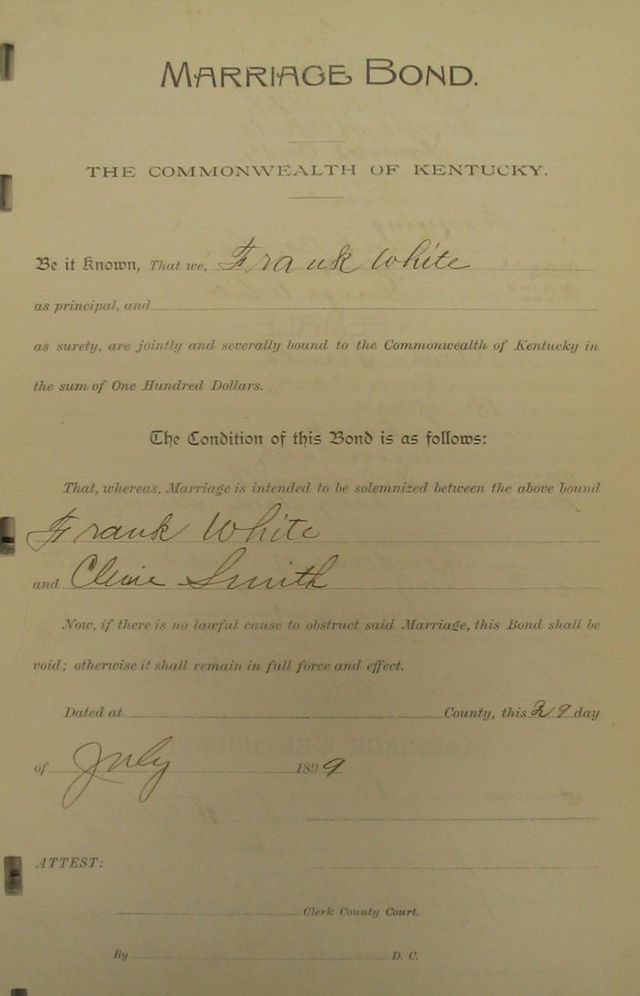 MARRIAGE BOND.
THE COMMONWEALTH OF KENTUCKY.
Be it Known, That we, Frank White
as principal, and
as surety, are jointly and severally bound to the Commonwealth of Kentucky in
the sum of One Hundred Dollars.
The Condition of this Bond is as follows:
That, whereas, Marriage is intended to be solemnized between the above bound
Frank White
and Smith
Now, if there is no lawful cause to obstruct said Marriage, this Bond shall be
void; otherwise it shall remain in full force and effect.
Dated at County, this 29 day
of July 1899
ATTEST:
Clerk County Court.
By D. C.